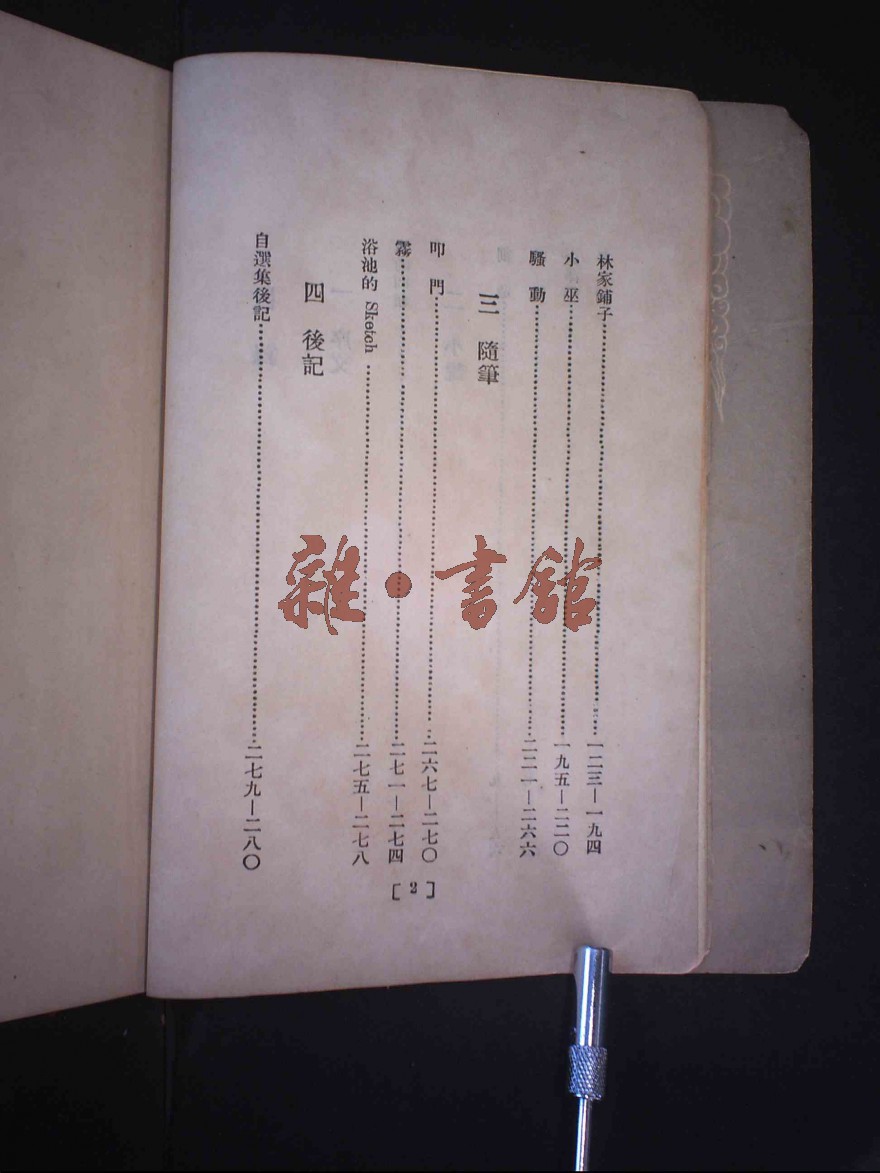 林家鋪子…………一二三—一九四
小巫…………一九五—二二〇
騷動…………二二一—二六六
三 隨筆
叩門…………二六七—二七〇
霧…………二七一—二七四
浴池的 Sketch…………二七五—二七八
四 後記
自選集後記…………二七九—二八〇
[2]
雜·書館